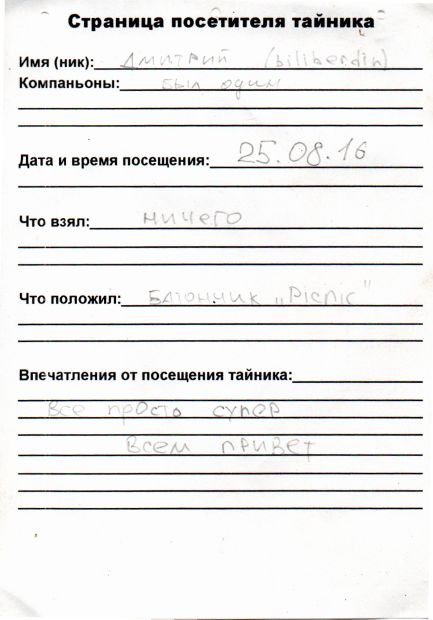 Страница посетителя тайника
Имя (ник): Дмитрий (biliberdin)
Компаньоны: был один
Дата и время посещения: 25.08.16
Что взял: ничего
Что положил: Батончик „Picnic"
Впечатления от посещения тайника:
Все просто супер
Всем привет